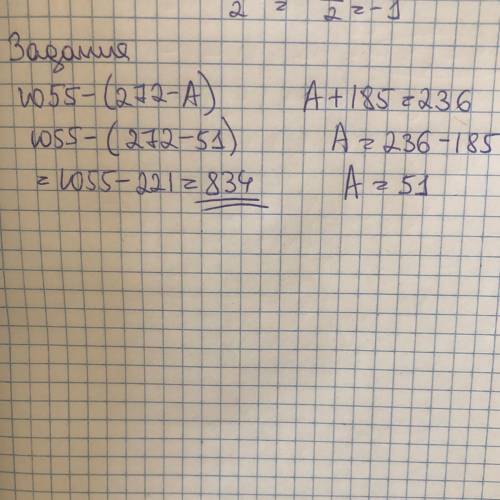 2 = 2 = -1
Задания
1055-(272-A)
1055-(272-51)
=1055-221=834
A+185=236
A=236-185
A=51